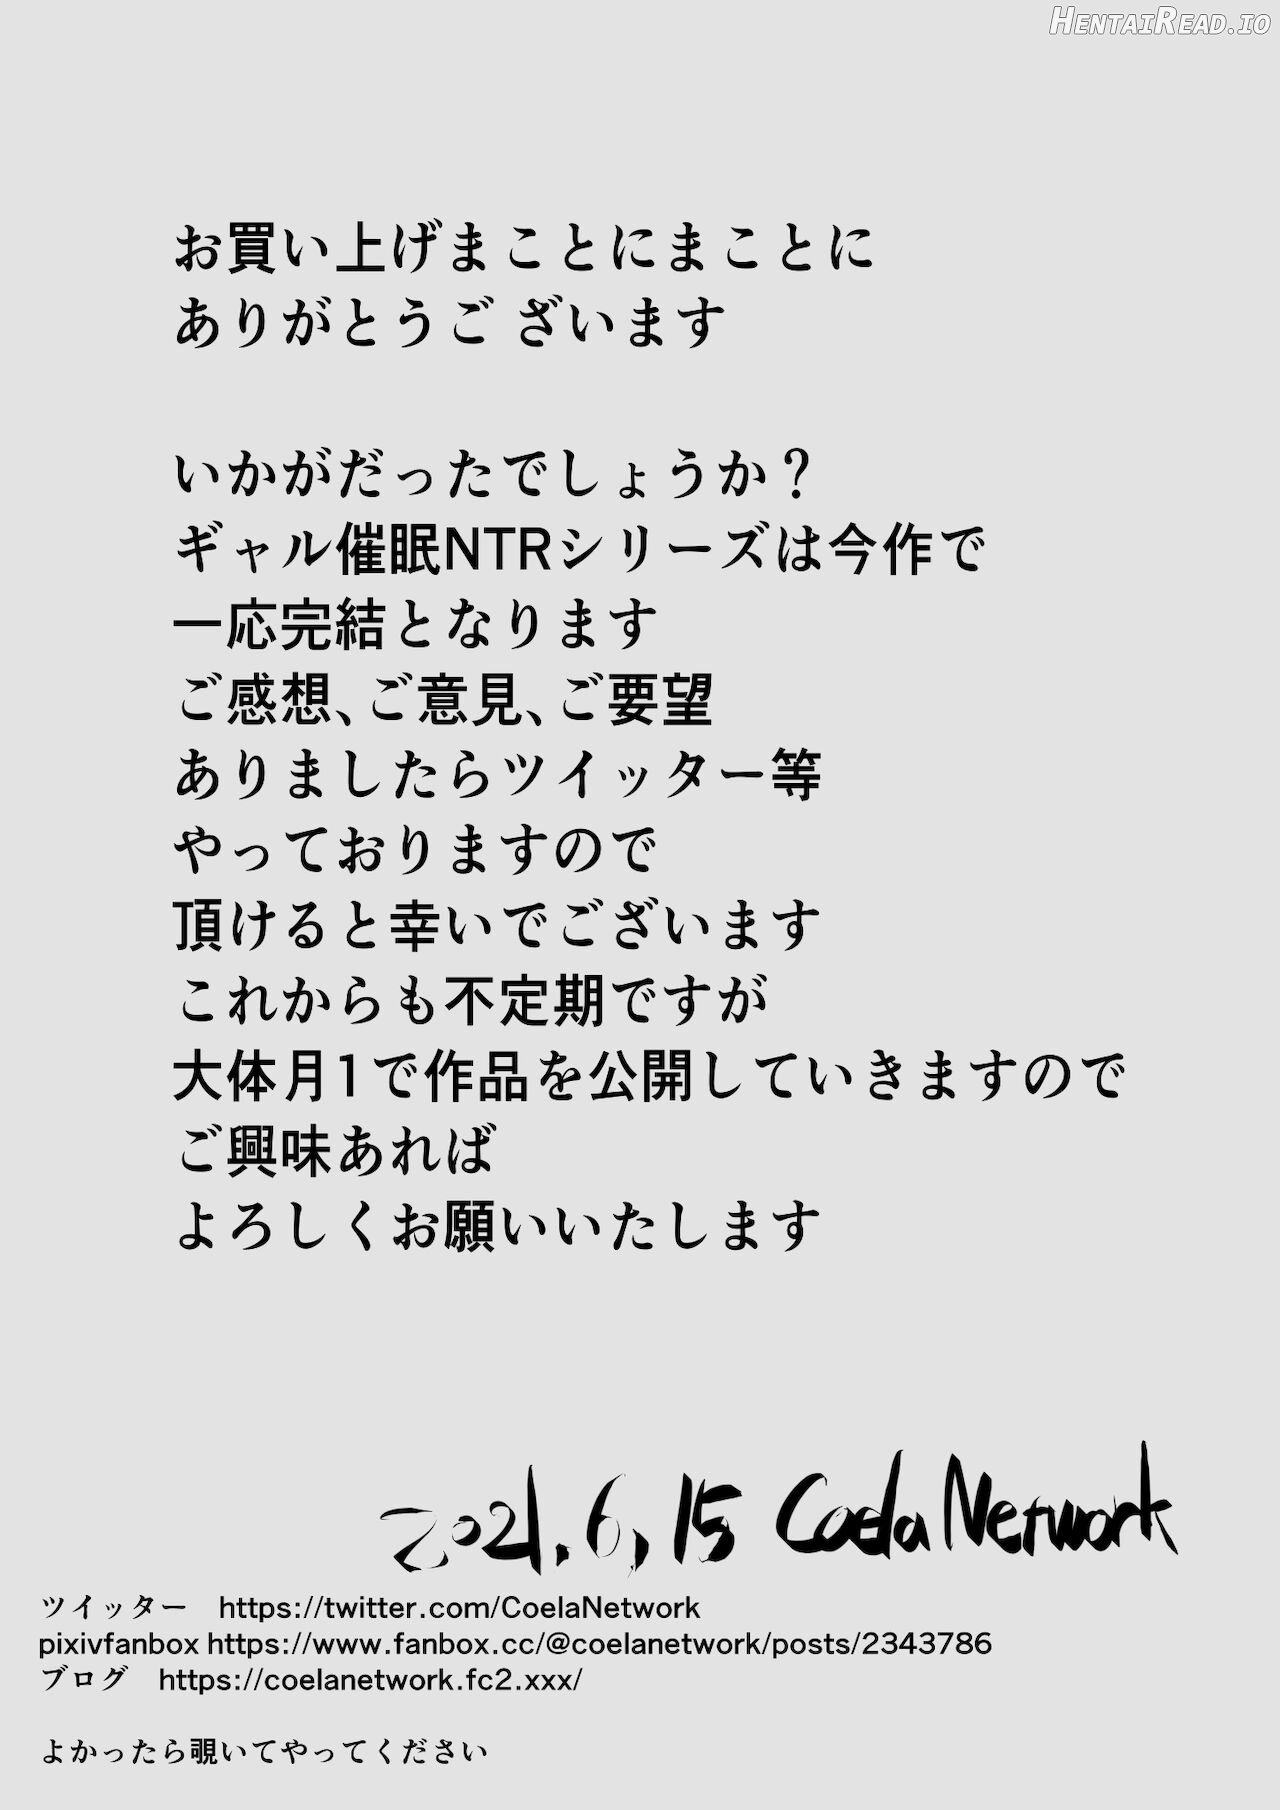 HentaiRead.io
お買い上げまことにまことに
ありがとうご ざいます
いかがだったでしょうか？
ギャル催眠NTRシリーズは今作で
一応完結となります
ご感想、ご意見、ご要望
ありましたらツイッター等
やっておりますので
頂けると幸いでございます
これからも不定期ですが
大体月1で作品を公開していきますので
ご興味あれば
よろしくお願いいたします
2021.6,15 CoelaNetwork
ツイッター　https://twitter.com/CoelaNetwork
pixivfanbox https://www.fanbox.cc/@coelanetwork/posts/2343786
ブログ　https://coelanetwork.fc2.xxx/
よかったら覗いてやってください